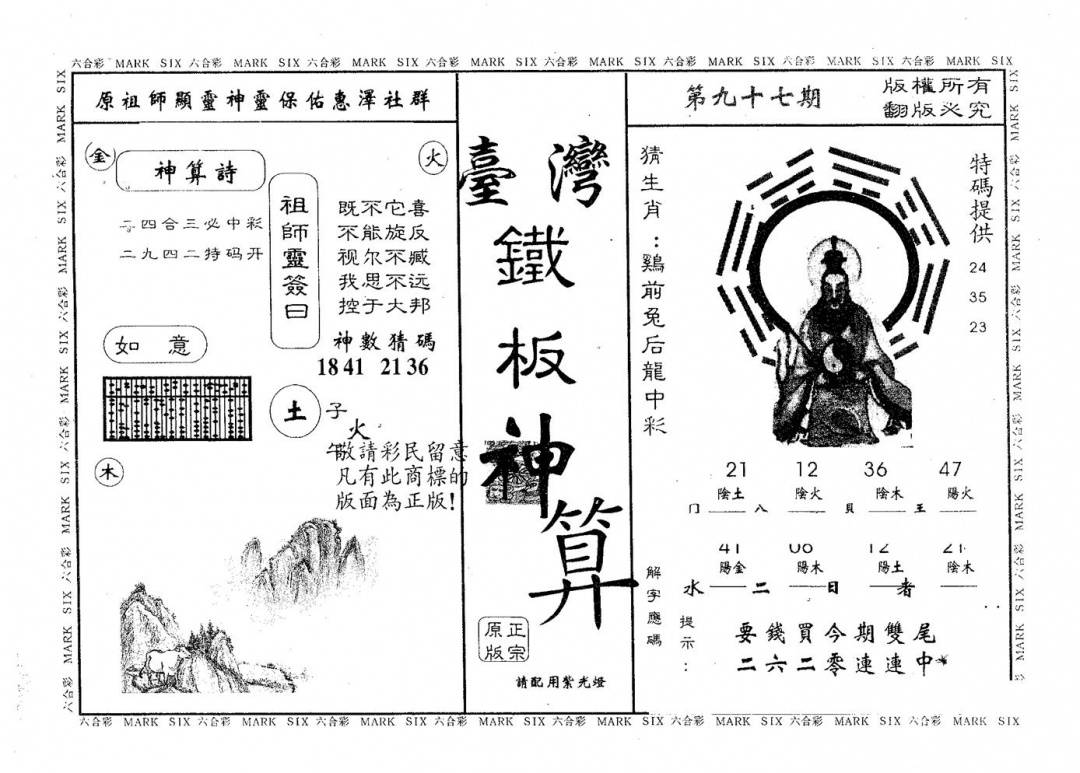 六合彩 MARK SIX 六合彩 MARK SIX 六合彩 MARK SIX 六合彩 MARK SIX 六合彩 MARK SIX 六合彩 MARK SIX 六合彩 MARK SIX 六合彩 MARK SIX
原祖師顯靈神靈保佑惠澤社群
金
神算詩
火
二四合三必中彩
二九四二特码开
祖師靈簽曰
既不它喜
不能旋反
视尔不臧
我思不远
控于大邦
神數猜碼
18 41 21 36
如意
土
子
火
午
敬請彩民留意
凡有此商標的
版面為正版!
木
臺灣
鐵
板
神
算
正宗
原版
請配用紫光燈
第九十七期
版權所有
翻版必究
猜生肖:鷄前兔后龍中彩
特碼提供
24
35
23
21 12 36 47
陰土 陰火 陰木 陽火
门 八 貝 王
41 06 12 21
陽金 陽木 陽土 陰木
水 二 日 者
解字應碼
提示:
要錢買今期雙尾
二六二零連連中*
六合彩 MARK SIX 六合彩 MARK SIX 六合彩 MARK SIX 六合彩 MARK SIX 六合彩 MARK SIX 六合彩 MARK SIX 六合彩 MARK SIX 六合彩 MARK SIX